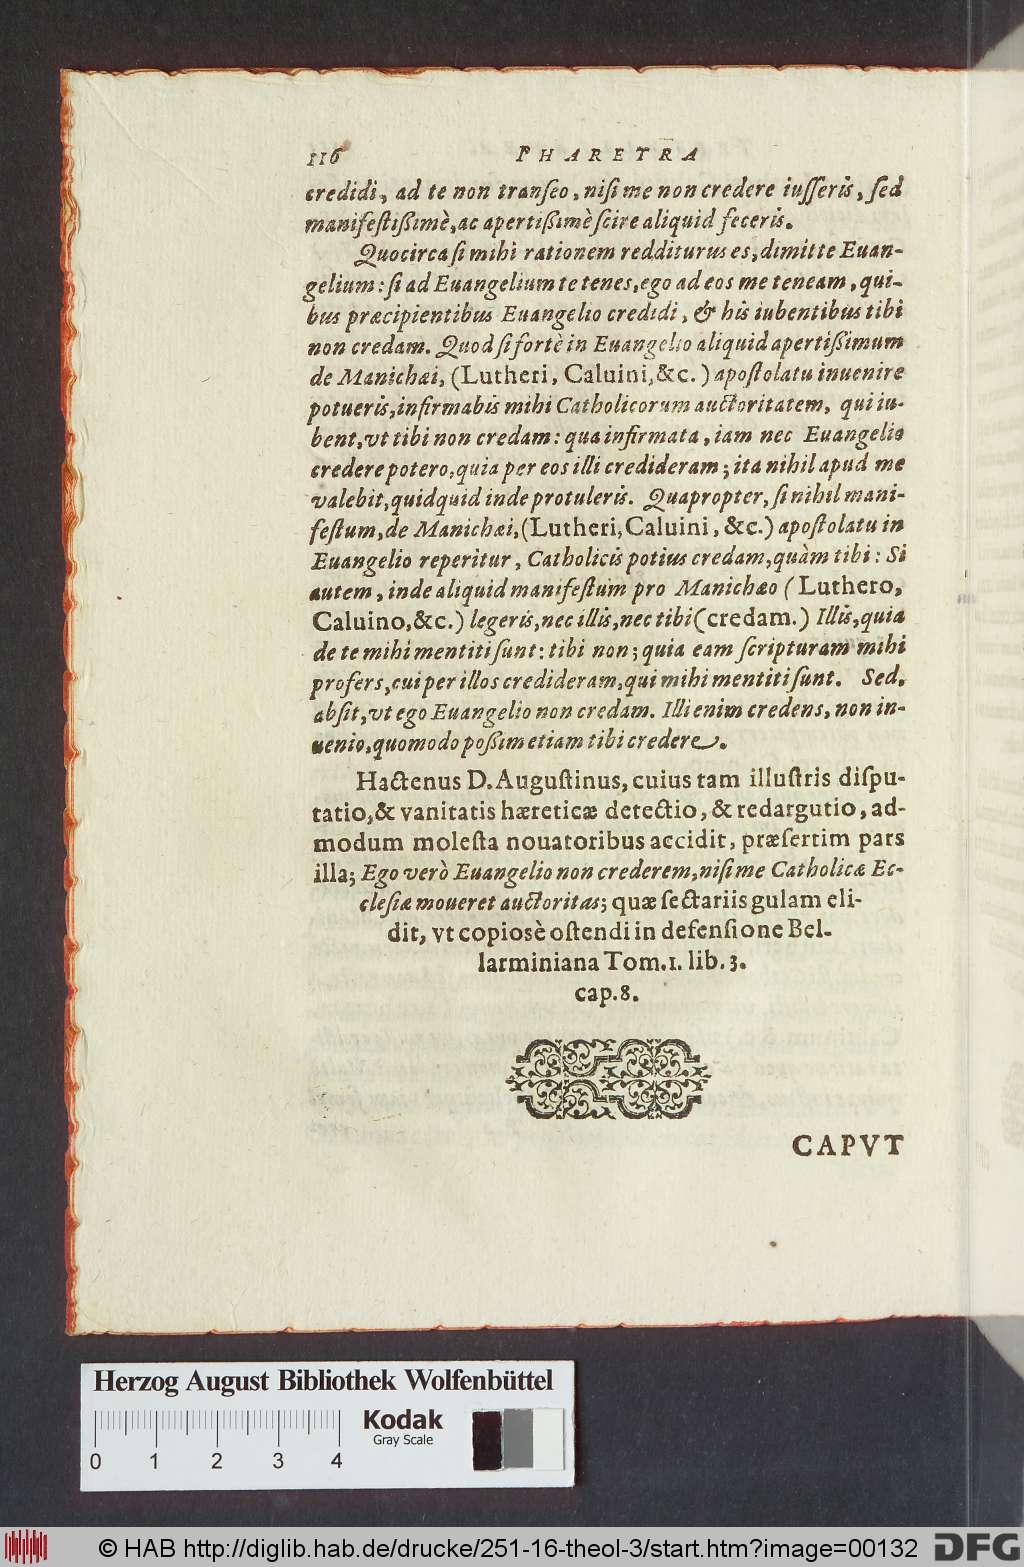 116 PHARETRA
credidi, ad te non tranſeo, niſi me non credere iuſſeris, ſed
manifeſtißimè, ac apertißimè ſcire aliquid feceris.
Quocirca ſi mihi rationem redditurus es, dimitte Euan-
gelium: ſi ad Euangelium te tenes, ego ad eos me teneam, qui-
bus præcipientibus Euangelio credidi, & his iubentibus tibi
non credam. Quod ſi fortè in Euangelio aliquid apertißimum
de Manichæi, (Lutheri, Caluini, &c.) apoſtolatu inuenire
potueris, infirmabis mihi Catholicorum auctoritatem, qui iu-
bent, vt tibi non credam: qua infirmata, iam nec Euangelio
credere potero, quia per eos illi credideram; ita nihil apud me
valebit, quidquid inde protuleris. Quapropter, ſi nihil mani-
feſtum, de Manichæi, (Lutheri, Caluini, &c.) apoſtolatu in
Euangelio reperitur, Catholicis potius credam, quàm tibi: Si
autem, inde aliquid manifeſtum pro Manichæo (Luthero,
Caluino, &c.) legeris, nec illis, nec tibi (credam.) Illis, quia
de te mihi mentiti ſunt: tibi non; quia eam ſcripturam mihi
profers, cui per illos credideram, qui mihi mentiti ſunt. Sed,
abſit, vt ego Euangelio non credam. Illi enim credens, non in-
uenio, quomodo poßim etiam tibi credere.
Hactenus D. Auguſtinus, cuius tam illuſtris diſpu-
tatio, & vanitatis hæreticæ detectio, & redargutio, ad-
modum moleſta nouatoribus accidit, præſertim pars
illa; Ego verò Euangelio non crederem, niſi me Catholicæ Ec-
cleſiæ moueret auctoritas; quæ ſectariis gulam eli-
dit, vt copiosè oſtendi in defenſione Bel-
larminiana Tom. 1. lib. 3.
cap. 8.
CAPVT
Herzog August Bibliothek Wolfenbüttel
Kodak
Gray Scale
0 1 2 3 4
© HAB http://diglib.hab.de/drucke/251-16-theol-3/start.htm?image=00132 DFG